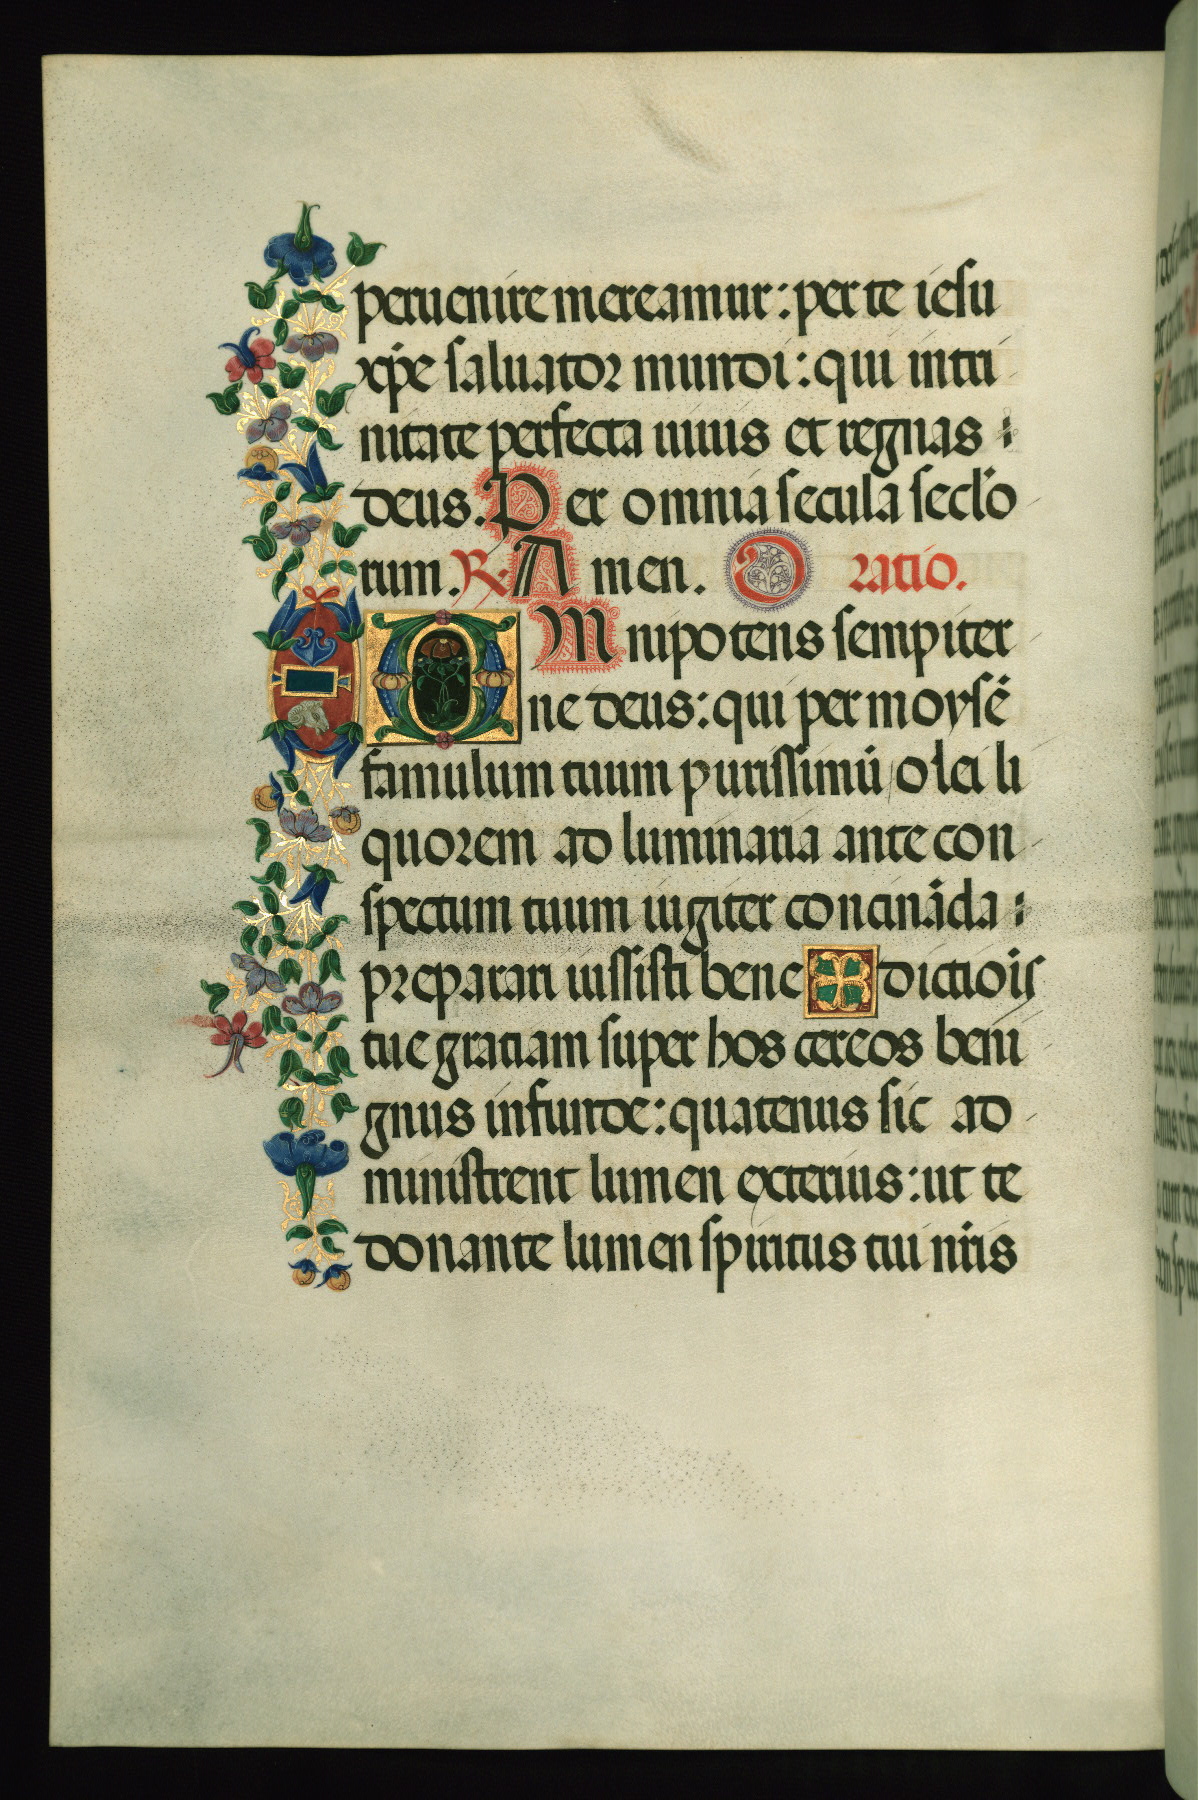 peruenire mereamur: per te iesu
xp̄e saluator mundi: qui in tri
nitate perfecta uiuis et regnas
deus. Per omnia secula seclo
rum. ℟. Amen. Oratio.
OMnipotens sempiter
ne deus: qui per moysē
famulum tuum purissimū olei li
quorem ad luminaria ante con
spectum tuum iugiter concināda
preparari iussisti bene✠dictiōis
tue gratiam super hos cereos beni
gnus infunde: quatenus sic ad
ministrent lumen exterius: ut te
donante lumen spiritus tui nr̄is